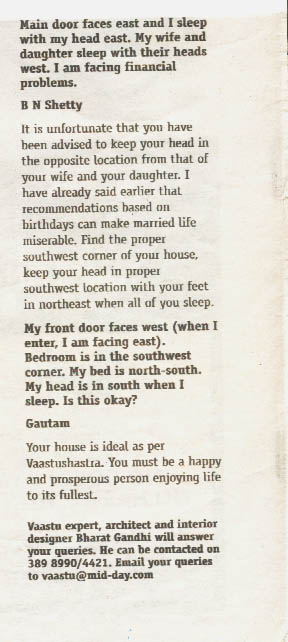 Main door faces east and I sleep
with my head east. My wife and
daughter sleep with their heads
west. I am facing financial
problems.
B N Shetty
It is unfortunate that you have
been advised to keep your head in
the opposite location from that of
your wife and your daughter. I
have already said earlier that
recommendations based on
birthdays can make married life
miserable. Find the proper
southwest corner of your house,
keep your head in proper
southwest location with your feet
in northeast when all of you sleep.
My front door faces west (when I
enter, I am facing east).
Bedroom is in the southwest
corner. My bed is north-south.
My head is in south when I
sleep. Is this okay?
Gautam
Your house is ideal as per
Vaastushastra. You must be a happy
and prosperous person enjoying life
to its fullest.
Vaastu expert, architect and interior
designer Bharat Gandhi will answer
your queries. He can be contacted on
389 8990/4421. Email your queries
to vaastu@mid-day.com